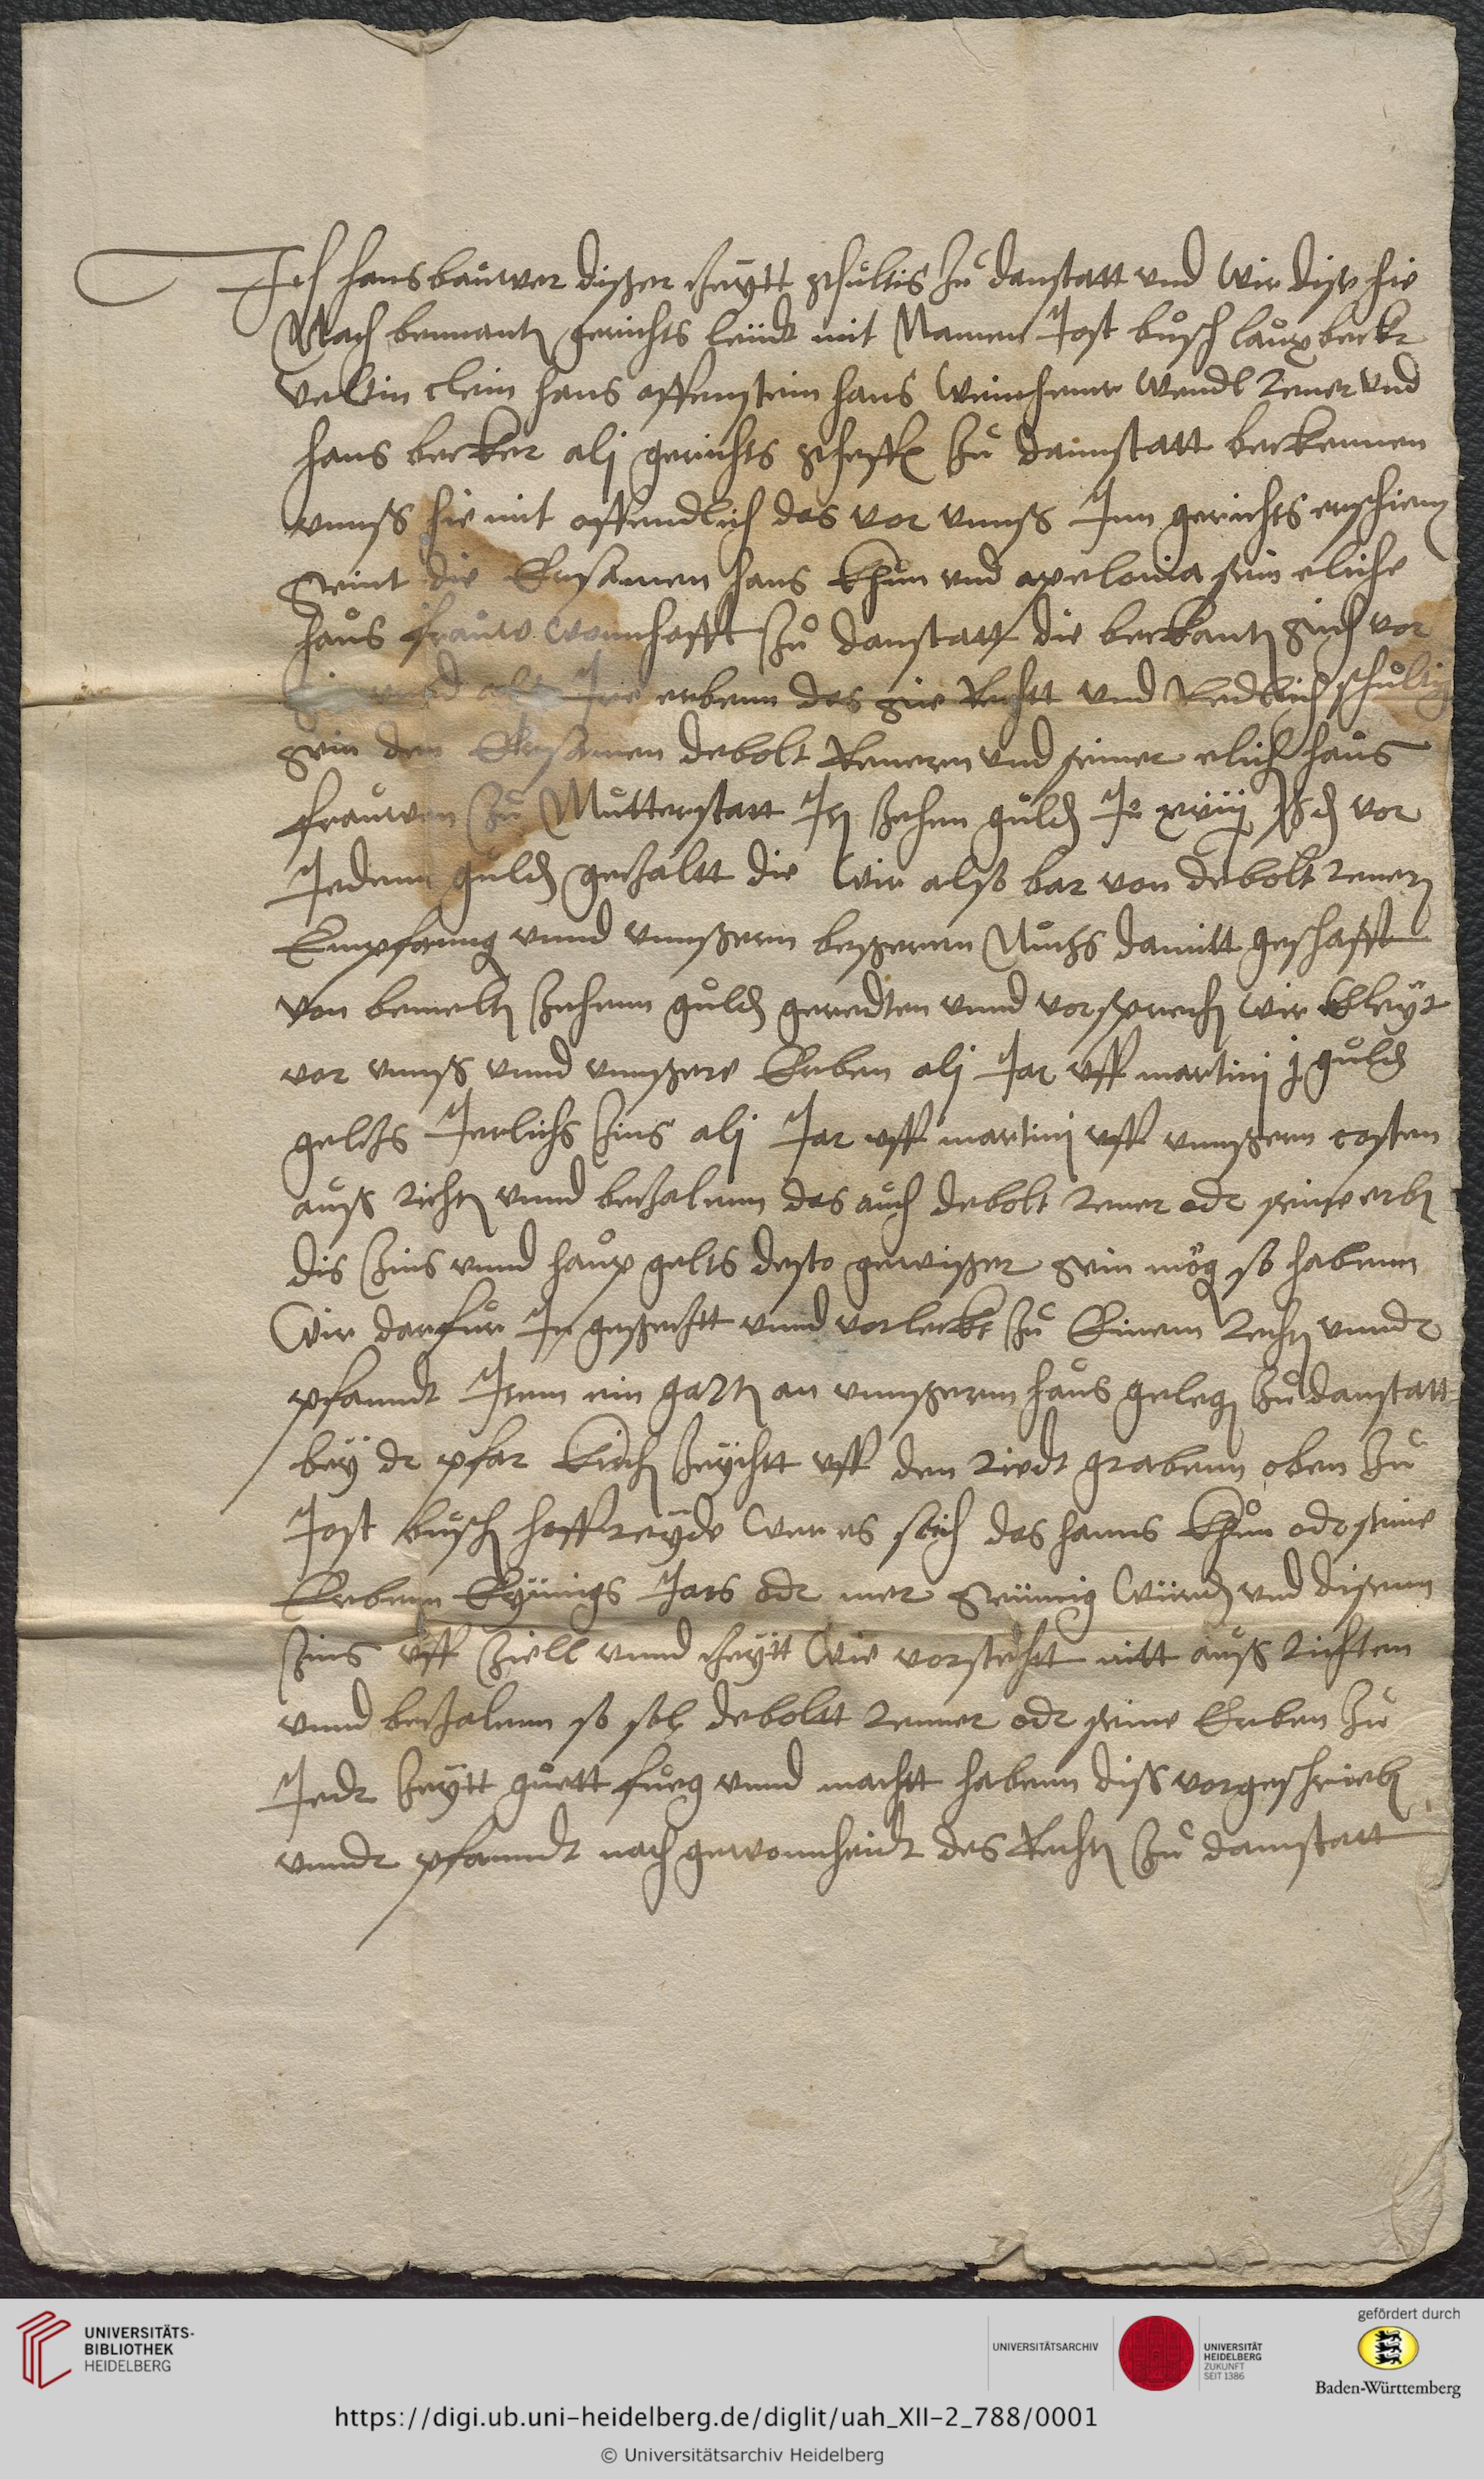 Ich hans bauwer dißer zeytt schultis zu danstatt und wir dise hie
Nach bennantn gerichts leudt mit Namen Jost busch laux beckr
veltin clein hans offenstein hans weinheimr wendl Rener und
hans becker alj gerichts scheffn zu dannstatt beckennen
vnnß hie mit offendlich das vor vnnß Inn gerichts erschienn
seint die Ersamen hans Khun und apelonia sein eliche
haus frauw wonhafft zu danstatt die beckantn sich vor
alt Ire erbenn das sie Rechtt und Redlich schultig
sein den Ersamen debolt Renern und seiner elich haus
frauwen zu Mutterstatt zehen guldn Je xviij ß d vor
Jedenn guldn gezaltt die wir also bar von debolt Renern
Empfanng vnnd vnnßerm beßeren Nuchs damitt geschafft
von bemeltn zehenn guldn geredten vnnd vorsprechn wir Eleyt
vor vnnß vnnd vnnßere Erben alj Jar uff martinj j guldn
geltzs Jerlichs zins alj Jar uff martinj uff vnnßern costen
auß Richtn vnnd bezalenn das auch debolt Rener odr seine erbn
dis zins vnnd haup gelts desto gewißer sein mög so habenn
wir darfur In geßechtt vnnd vorleckt zu Einem Rechtn vnndr
pfanndt Item ein gartn an vnnßerm haus gelegn zu danstatt
bey dr pfar kirchn zeychtt uff den Riedt grabenn oben zu
Jost busch hoff Reyde wer es sach das hanns Khun odr seine
Erbenn Eynigs Jars odr mer seumig wurdn und dißenn
zins uff ziell vnnd zeytt wie vorstehtt nitt auß Richten
vnnd bezalenn so sol deboltt Renner odr seine Erben zu
Jedr zeytt guett fueg vnnd machtt habenn diß vorgeschriebn
vnndr pfanndt nach gewonnheidt des Rechtn zu danstatt
UNIVERSITÄTS-
BIBLIOTHEK
HEIDELBERG
UNIVERSITÄTSARCHIV
UNIVERSITÄT
HEIDELBERG
ZUKUNFT
SEIT 1386
gefördert durch
Baden-Württemberg
https://digi.ub.uni-heidelberg.de/diglit/uah_XII-2_788/0001
© Universitätsarchiv Heidelberg